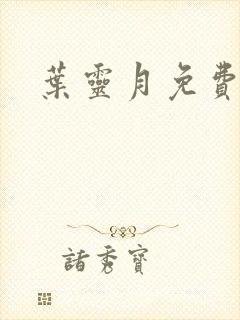 葉靈月免費
諸秀寶